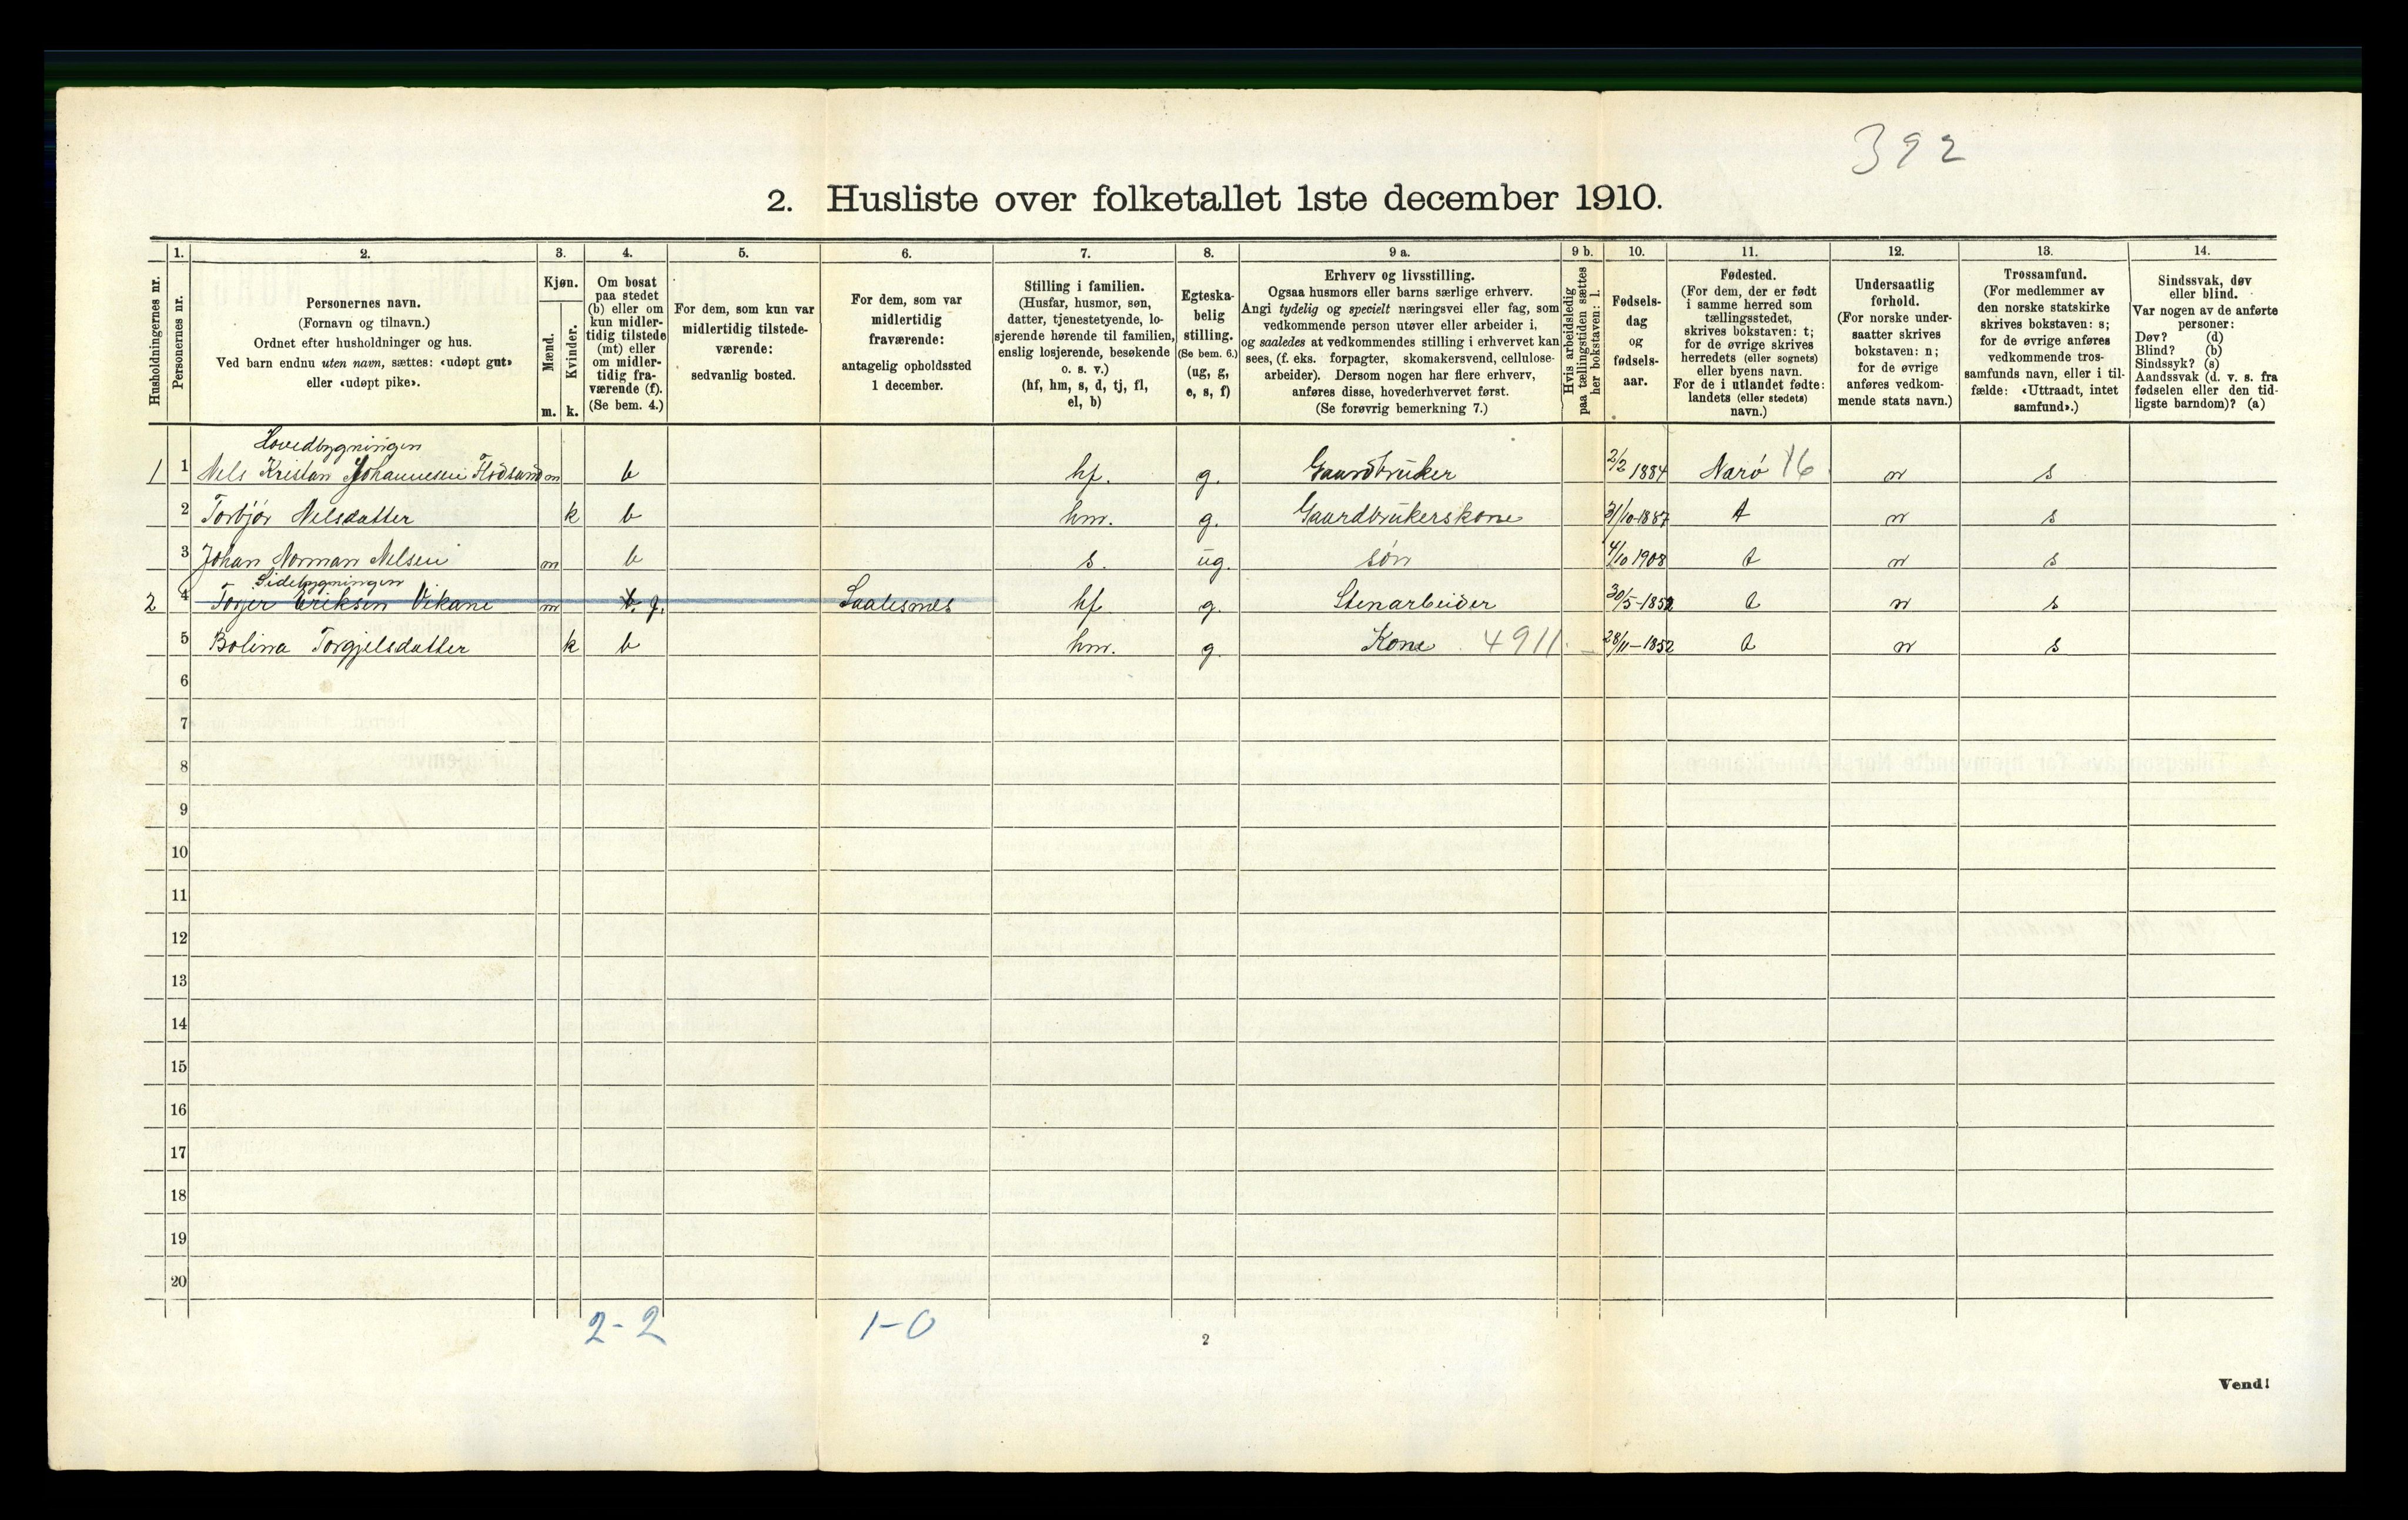 392
2. Husliste over folketallet 1ste december 1910.
Husholdningernes nr.
1.
Personernes nr.
2.
Personernes navn.
(Fornavn og tilnavn.)
Ordnet efter husholdninger og hus.
Ved barn endnu uten navn, sættes: «udøpt gut»
eller «udøpt pike».
3.
Kjøn.
Mænd.
Kvinder.
m. k.
4.
Om bosat
paa stedet
(b) eller om
kun midler-
tidig tilstede
(mt) eller
om midler-
tidig fra-
værende (f).
(Se bem. 4.)
5.
For dem, som kun var
midlertidig tilstede-
værende:
sedvanlig bosted.
6.
For dem, som var
midlertidig
fraværende:
antagelig opholdssted
1 december.
7.
Stilling i familien.
(Husfar, husmor, søn,
datter, tjenestetyende, lo-
sjerende hørende til familien,
enslig losjerende, besøkende
o. s. v.)
(hf, hm, s, d, tj, fl,
el, b)
8.
Egteska-
belig
stilling.
(Se bem. 6.)
(ug, g,
e, s, f)
9 a.
Erhverv og livsstilling.
Ogsaa husmors eller barns særlige erhverv.
Angi tydelig og specielt næringsvei eller fag, som
vedkommende person utøver eller arbeider i,
og saaledes at vedkommendes stilling i erhvervet kan
sees, (f. eks. forpagter, skomakersvend, cellulose-
arbeider). Dersom nogen har flere erhverv,
anføres disse, hovederhvervet først.
(Se forøvrig bemerkning 7.)
9 b.
Hvis arbeidsledig
paa tællingstiden sættes
her bokstaven: l.
10.
Fødsels-
dag
og
fødsels-
aar.
11.
Fødested.
(For dem, der er født
i samme herred som
tællingsstedet,
skrives bokstaven: t;
for de øvrige skrives
herredets (eller sognets)
eller byens navn.
For de i utlandet fødte:
landets (eller stedets)
navn.)
12.
Undersaatlig
forhold.
(For norske under-
saatter skrives
bokstaven: n;
for de øvrige
anføres vedkom-
mende stats navn.)
13.
Trossamfund.
(For medlemmer av
den norske statskirke
skrives bokstaven: s;
for de øvrige anføres
vedkommende tros-
samfunds navn, eller i til-
fælde: «Uttraadt, intet
samfund».)
14.
Sindssvak, døv
eller blind.
Var nogen av de anførte
personer:
Døv? (d)
Blind? (b)
Sindssyk? (s)
Aandssvak (d. v. s. fra
fødselen eller den tid-
ligste barndom)? (a)
Hovedbygningen
1 1 Nels Kristan Johannesen Flodsund m b hf. g. Gaardbruker 2/2 1884 Narö 16 n s
2 Torbjör Nelsdatter k b hm. g. Gaardbrukerskone 31/10-1887 t n s
3 Johan Norman Nelsen m b s. ug. sön 4/10 1908 t n s
Sidebygningen
2 4 Torjer Eriksen Vikane m b f. hf g. Stenarbeider 30/5-1852 t n s
5 Bolina Torgjelsdatter k b hm. g. Kone 4911. 28/11-1852 t n s
6
7
8
9
10
11
12
13
14
15
16
17
18
19
20
2-2 1-0
2
Vend!